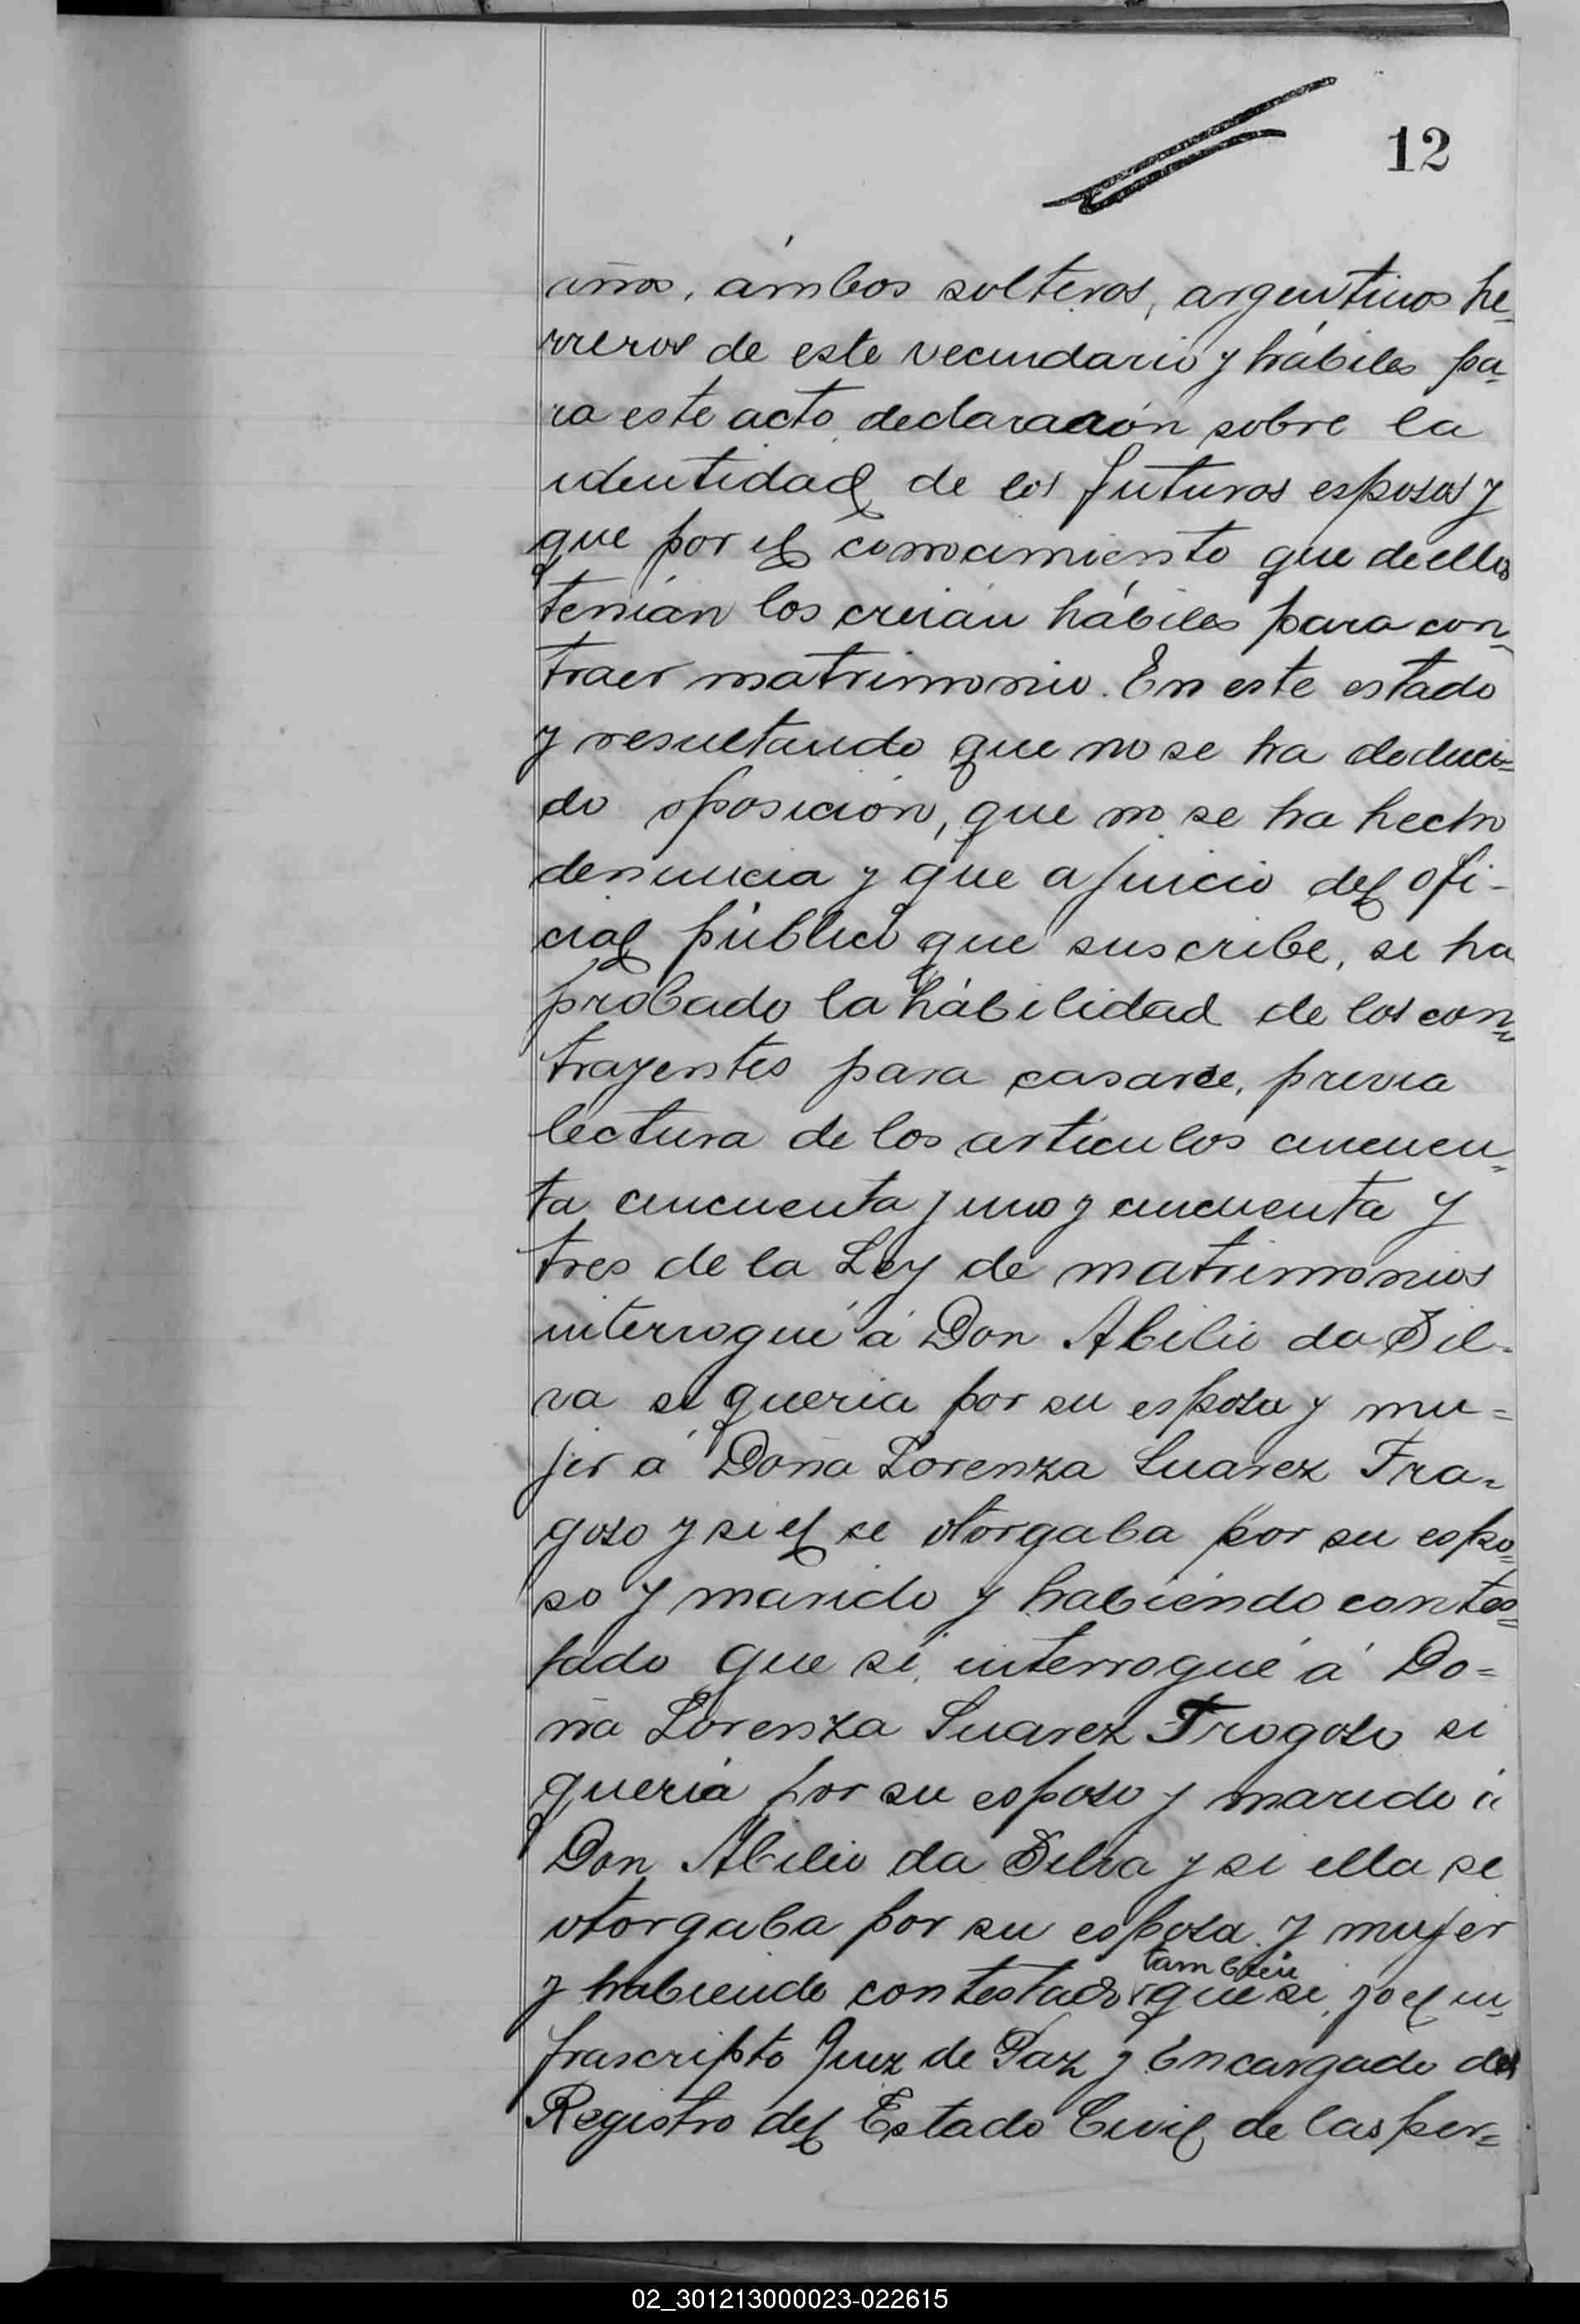 12
años, ámbos solteros, argentinos he-
rreros de este vecindario y hábiles pa-
ra este acto declararón sobre la
identidad de los futuros esposos y
que por el conocimiento que de ellos
tenían los creían hábiles para con-
traer matrimonio. En este estado
y resultando que no se ha deduci-
do oposición, que no se ha hecho
denuncia y que a juicio del ofi-
cial público que suscribe, se ha
probado la hábilidad de los con-
trayentes para casarse, previa
lectura de los articulos cincuen-
ta cincuenta y uno y cincuenta y
tres de la Ley de matrimonios
interrogué á Don Abilio da Sil-
va si queria por su esposa y mu-
jer á Doña Lorenza Suarez Fra-
goso y si el se otorgaba por su espo-
so y marido y habiendo contes-
tado que si, interrogué á Do-
ña Lorenza Suarez Frogoso si
quería por su esposo y marido á
Don Abilio da Silva y si ella se
otorgaba por su esposa y mujer
y habiendo contestado también que si, yo el in-
frascripto Juez de Paz y Encargado del
Registro del Estado Civil de las per-
02_301213000023-022615